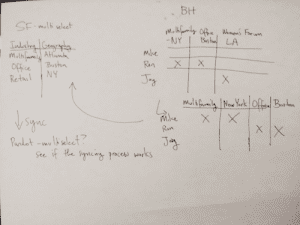 BH
SF - multi select
Multifamily Office Women's Forum
NY Boston LA
Mike
Ron X X
Jay X
Industry Geography
Multifamily Atlanta
Office Boston
Retail NY
Multifamily New York Office Boston
Mike X X
Ron X X
Jay
↓ Sync
Pardot - multiselect?
see if the syncing process works